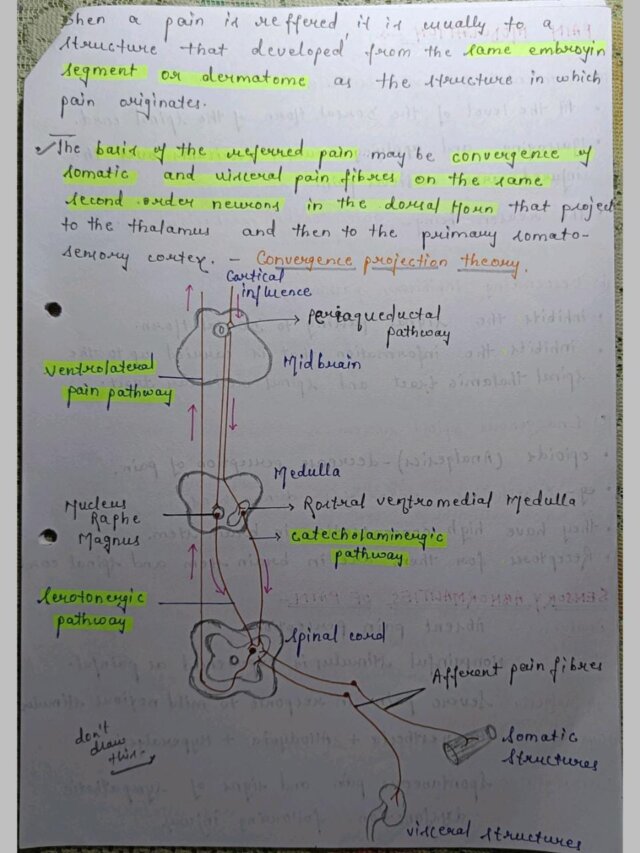 when a pain is reffered, it is usually to a
structure that developed from the same embroyin
segment or dermatome as the structure in which
pain originates.
The basis of the referred pain may be convergence of
somatic and visceral pain fibres on the same
second order neurons in the dorsal Horn that project
to the thalamus and then to the primary somato-
sensory cortex. - Convergence projection theory.
Cortical
influence
periaqueductal
pathway
Midbrain
ventrolateral
pain pathway
Medulla
Nucleus
Raphe
Magnus
Rostral ventromedial Medulla
catecholaminergic
pathway
Serotonergic
pathway
Spinal cord
Afferent pain fibres
don't
draw
this.
Somatic
structures
visceral structures